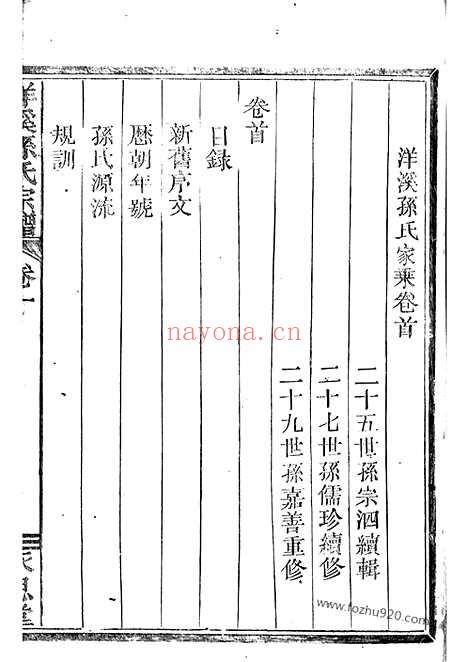 洋溪孫氏家乘卷首
二十五世孫宗泗續輯
二十七世孫儒珍續修
二十九世孫嘉善重修
卷首
目錄
新舊序文
歷朝年號
孫氏源流
規訓
洋溪孫氏宗譜
卷一
nayona.cn
www.fozhu920.com